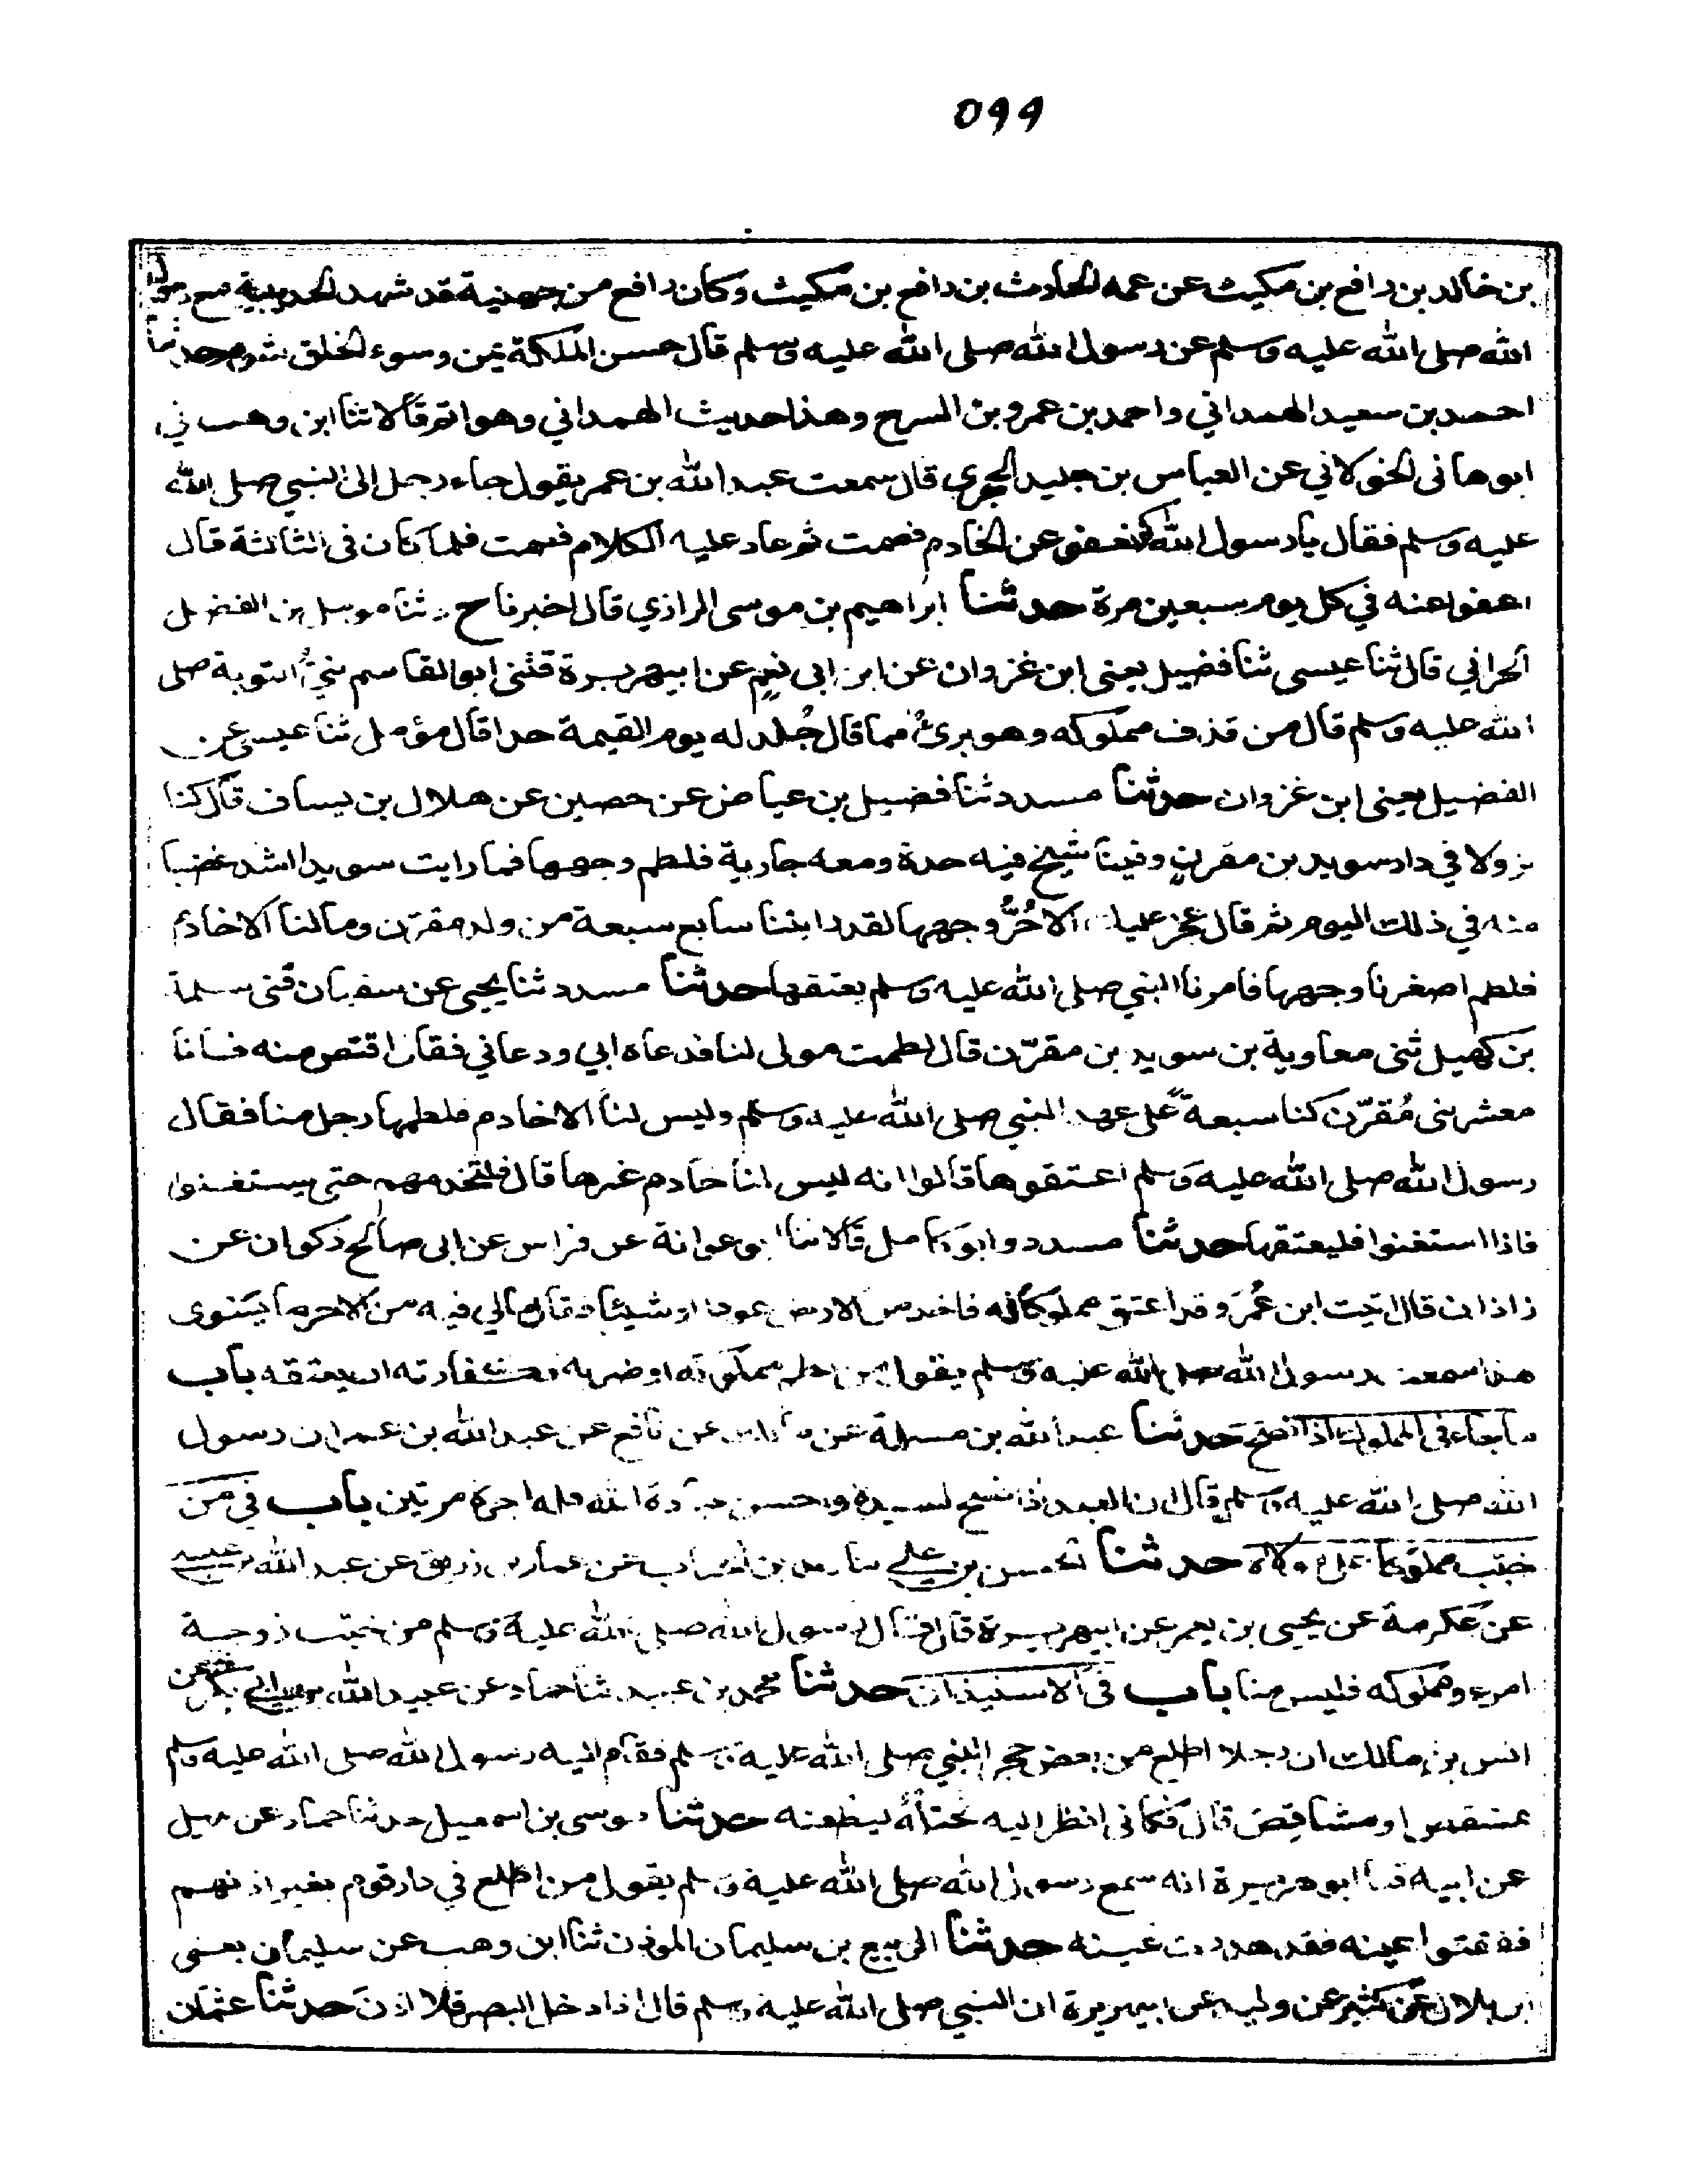 ٥٩٩
بن خالد بن رافع بن مكيث عن عمه الحارث بن رافع بن مكيث وكان رافع من جهنية قد شهد الحديبية مع رسول
الله صلى الله عليه وسلم عن رسول الله صلى الله عليه وسلم قال حسن الملكة يمن وسوء الخلق شوم حدثنا
احمد بن سعيد الهمداني واحمد بن عمرو بن السرح وهذا حديث الهمداني وهو اتم قالا ثنا ابن وهب ني
ابو هانى الخولاني عن العباس بن جليد الحجري قال سمعت عبد الله بن عمر يقول جاء رجل الى النبي صلى الله
عليه وسلم فقال يا رسول الله كم نعفو عن الخادم فصمت ثم عاد عليه الكلام فصمت فلما كان في الثالثة قال
اعفوا عنه في كل يوم سبعين مرة حدثنا ابراهيم بن موسى الرازي قال اخبرنا ح وثنا مومل بن الفضل
الحراني قال ثنا عيسى ثنا فضيل يعنى ابن غزوان عن ابن ابى نعم عن ابيهريرة قثنى ابو القاسم نبي التوبة صلى
الله عليه وسلم قال من قذف مملوكه وهو برئ مما قال جُلد له يوم القيمة حدا قال مؤمل ثنا عيسى عن
الفضيل يعنى ابن غزوان حدثنا مسدد ثنا فضيل بن عياض عن حصين عن هلال بن يساف قال كنا
نزولا في دار سويد بن مقرن وفينا شيخ فيه حدة ومعه جارية فلطم وجهها فما رايت سويدا اشد غضبا
منه في ذلك اليوم ثم قال عجز عليك الا حُرُّ وجهها لقد رايتنا سابع سبعة من ولد مقرن ومالنا الا خادم
فلطم اصغرنا وجهها فامرنا النبي صلى الله عليه وسلم بعتقها حدثنا مسدد ثنا يحيى عن سفيان قثنى سلمة
بن كهيل ثنى معاوية بن سويد بن مقرّن قال لطمت مولى لنا فدعاه ابي ودعاني فقال اقتص منه فانا
معشر بنى مُقرّن كنا سبعة على عهد النبي صلى الله عليه وسلم وليس لنا الا خادم فلطمها رجل منا فقال
رسول الله صلى الله عليه وسلم اعتقوها قالوا انه ليس لنا خادم غيرها قال فلتخدمهم حتى يستغنوا
فاذا استغنوا فليعتقها حدثنا مسدد وابو كامل قالا ثنا ابو عوانة عن فراس عن ابى صالح ذكوان عن
زاذان قال اتيت ابن عُمَر وقد اعتق مملوكا له فاخذ من الارض عودا او شيئا فقال مالي فيه من الاجر ما يسوى
هذا سمعت رسول الله صلى الله عليه وسلم يقول من لطم مملوكه او ضربه فكفارته ان يعتقه باب
ما جاء في المملوك اذا نصح حدثنا عبد الله بن مسلمة عن مالك عن نافع عن عبد الله بن عمر ان رسول
الله صلى الله عليه وسلم قال ان العبد اذا نصح لسيده واحسن عبادة الله فله اجره مرتين باب في من
خبب مملوكا على مولاه حدثنا الحسن بن علي ثنا زيد بن الحباب عن عمار بن زريق عن عبد الله بن عيسى
عن عكرمة عن يحيى بن يعمر عن ابيهريرة قال قال رسول الله صلى الله عليه وسلم من خبب زوجة
امرء ومملوكه فليس منا باب في الاستيذان حدثنا محمد بن عبيد ثنا حماد عن عبيد الله بن ابي بكر عن
انس بن مالك ان رجلا اطلع من بعض حجر النبي صلى الله عليه وسلم فقام اليه رسول الله صلى الله عليه وسلم
بمشقص او مشاقص قال فكانى انظر اليه يختله ليطعنه حدثنا موسى بن اسمعيل حدثنا حماد عن سهيل
عن ابيه قثنا ابو هريرة انه سمع رسول الله صلى الله عليه وسلم يقول من اطلع في دار قوم بغير اذنهم
ففقئوا عينه فقد هدرت عينه حدثنا الربيع بن سليمان الموذن ثنا ابن وهب عن سليمان يعنى
ابن بلال عن كثير عن وليد عن ابيهريرة ان النبي صلى الله عليه وسلم قال اذا دخل البصر فلا اذن حدثنا عثمان